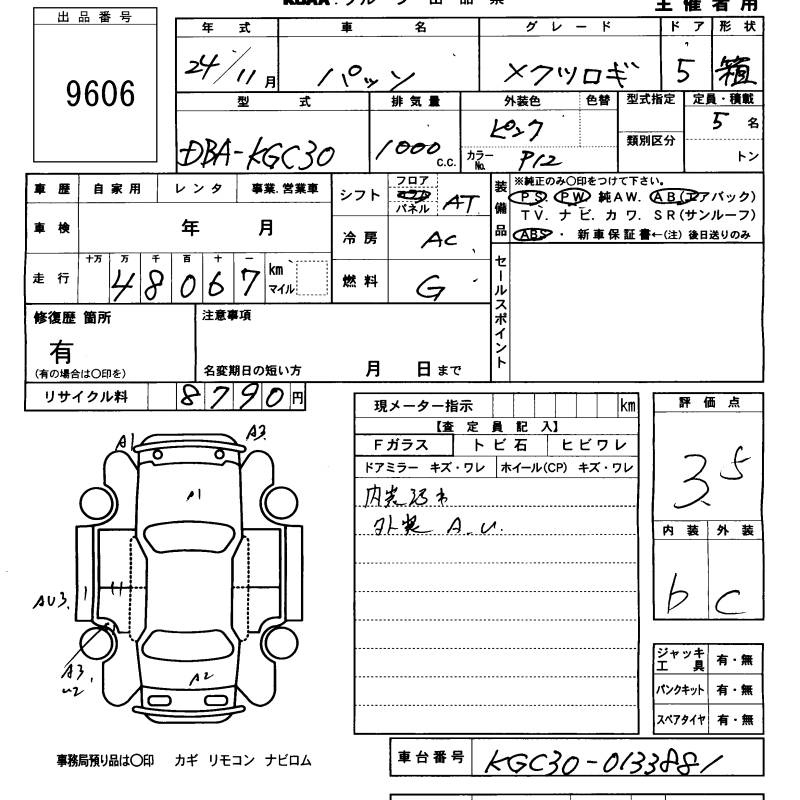 主催者用
出品番号
9606
年式 車名 グレード ドア 形状
24/11月 パッソ ×クツロギ 5 箱
型式 排気量 外装色 色替 型式指定 定員・積載
DBA-KGC30 1000c.c. ピンク 類別区分 5名
カラーNo. P12 トン
車歴 自家用 レンタ 事業.営業車
車検 年 月
走行 十万 万 千 百 十 一
48067 km マイル
シフト フロア コラム パネル AT
冷房 AC
燃料 G
装備品 ※純正のみ〇印をつけて下さい。
PS. PW 純AW. AB(エアバック)
TV. ナビ. カワ. SR(サンルーフ)
ABS ・ 新車保証書←(注) 後日送りのみ
セールスポイント
修復歴 箇所
有
(有の場合は〇印を)
注意事項
名変期日の短い方 月 日まで
リサイクル料 8790円
現メーター指示 km
【査定員記入】
Fガラス トビ石 ヒビワレ
ドアミラー キズ・ワレ ホイール(CP) キズ・ワレ
内装
外装 A.U.
評価点
3.5
内装 外装
b C
A1 A3
A1
AU3.
A3
U2
A2
ジャッキ工具 有・無
パンクキット 有・無
スペアタイヤ 有・無
事務局預り品は〇印 カギ リモコン ナビロム
車台番号 KGC30-0133881